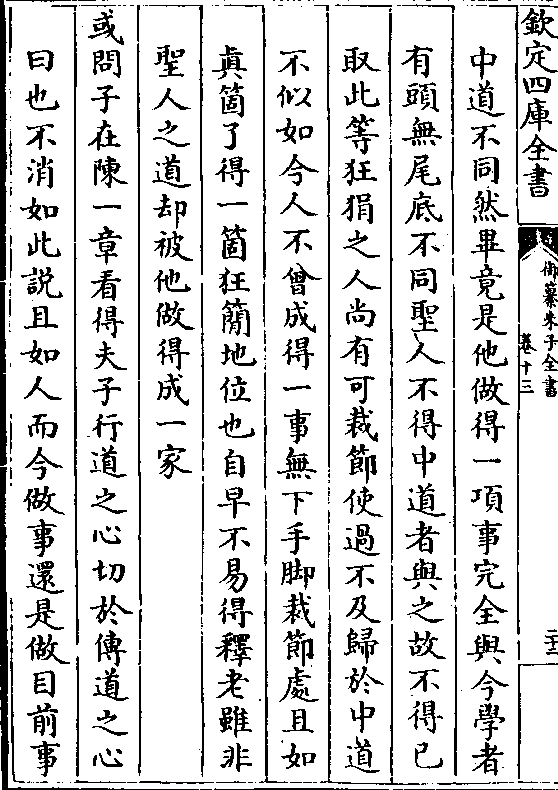 欽定四庫全書
御纂朱子全書
卷十三
中道不同然畢竟是他做得一項事完全與今學者
有頭無尾底不同聖人不得中道者與之故不得已
取此等狂狷之人尚有可裁節使過不及歸於中道
不似如今人不曾成得一事無下手脚裁節處且如
真箇了得一箇狂簡地位也自早不易得釋老雖非
聖人之道却被他做得成一家
或問子在陳一章看得夫子行道之心切於傳道之心
曰也不消如此説且如人而今做事還是做目前事